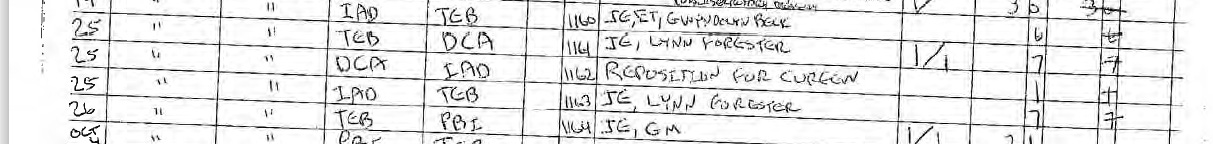 IAD TEB 1160 JE, ET, GWENDOLYN BECK
25 " " TEB DCA 1161 JE, LYNN FORESTER 1/1 6
25 " " DCA IAD 1162 REPOSITION FOR CURFEW 7 7
25 " " IAD TEB 1163 JE, LYNN FORESTER 1
26 " " TEB PBI 1164 JE, GM 1/1 7 7
OCT